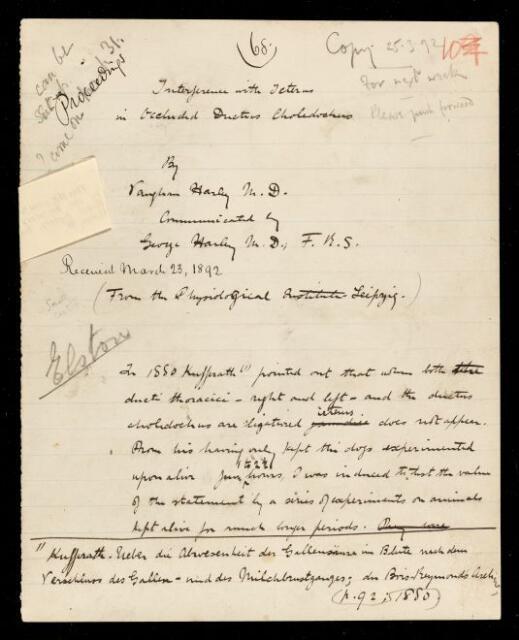 (68)
Copy 25.3.92
can be
Proceedings 31.
come on
For next week
Please push forward
Interference with Icterus
in Occluded Ductus Choledochus
By
Vaughan Harley M.D.
Communicated by
George Harley M.D., F.R.S.
Received March 23, 1892
(From the Physiological Institute Leipzig.)
Elston
In 1880 Kufferath (1) pointed out that when both the
ducti thoracici - right and left - and the ductus
choledochus are ligatured jaundice icterus does not appear.
From his having only kept the dogs experimented
upon alive few hours, I was induced to test the value
of the statement by a series of experiments on animals
kept alive for much longer periods. They were
(1) Kufferath. Ueber die Abwesenheit der Gallensäure im Blute nach dem
Verschluss des Gallen- und des Milchbrustganges; du Bois-Reymonds Archiv,
(p. 92, 1880)